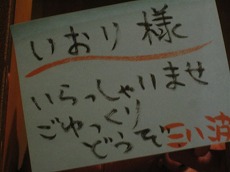 いおり 様
いらっしゃいませ
ごゆっくり
どうぞ